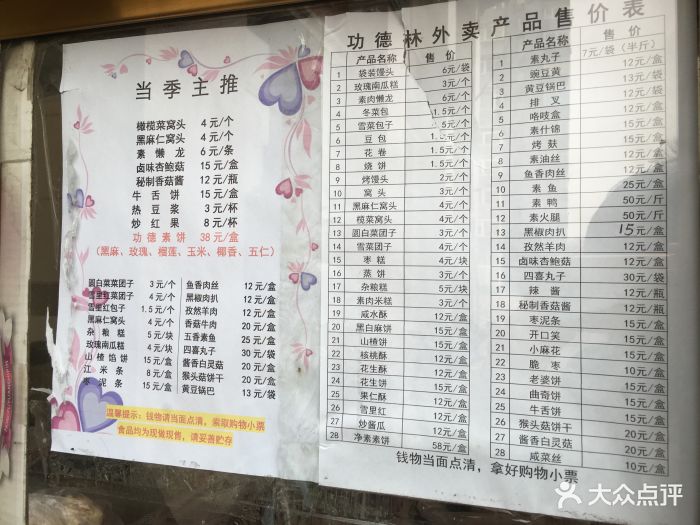 当季主推
橄榄菜窝头 4元/个
黑麻仁窝头 4元/个
素懒龙 6元/条
卤味杏鲍菇 15元/盒
秘制香菇酱 12元/瓶
牛舌饼 15元/盒
热豆浆 3元/杯
炒红果 8元/杯
功德素饼 38元/盒
（黑麻、玫瑰、榴莲、玉米、椰香、五仁）
圆白菜菜团子 3元/个 鱼香肉丝 12元/盒
雪里红菜团子 4元/个 黑椒肉扒 12元/盒
雪里红包子 1.5元/个 孜然羊肉 12元/盒
黑麻仁窝头 4元/个 香菇牛肉 20元/盒
杂粮糕 5元/块 五香素鱼 25元/盒
玫瑰南瓜糕 4元/块 四喜丸子 30元/袋
山楂馅饼 15元/盒 酱香白灵菇 20元/盒
江米条 8元/盒 猴头菇饼干 20元/盒
枣泥条 15元/盒 黄豆锅巴 13元/袋
温馨提示：钱物请当面点清，索取购物小票
食品均为现做现售，请妥善贮存
功德林外卖产品售价表
产品名称 售价
1 袋装馒头 6元/袋
2 玫瑰南瓜糕 3元/个
3 素肉懒龙 6元/个
4 冬菜包 1.5元/个
5 雪菜包子 1.5元/个
6 豆包
7 花卷 1.5元/个
8 烧饼 1.5元/个
9 烤馒头 2元/个
10 窝头 3元/个
11 黑麻窝头 4元/个
12 榄菜窝头 4元/个
13 圆白菜团子 3元/个
14 雪菜团子 4元/个
15 枣糕 4元/块
16 蒸饼 3元/个
17 杂粮糕 5元/块
18 素肉米糕 3元/个
19 咸水酥 12元/盒
20 黑白麻饼 12元/盒
21 山楂饼 12元/盒
22 核桃酥 12元/盒
23 花生酥 12元/盒
24 花生饼 15元/盒
25 果仁酥 12元/盒
26 雪里红 12元/盒
27 炒酱瓜 12元/盒
28 净素素饼 58元/盒
产品名称 售价
1 素丸子 7元/袋（半斤）
2 豌豆黄 12元/盒
3 黄豆锅巴 13元/袋
4 排叉 12元/盒
5 咯吱盒 12元/盒
6 素什锦 12元/盒
7 烤麸 12元/盒
8 素油丝 12元/盒
9 鱼香肉丝 12元/盒
10 素鱼 25元/盒
11 素鸭 50元/斤
12 素火腿 50元/斤
13 黑椒肉扒 15元/盒
14 孜然羊肉 12元/盒
15 卤味杏鲍菇 12元/盒
16 四喜丸子 30元/袋
17 辣酱 12元/瓶
18 秘制香菇酱 12元/瓶
19 枣泥条 15元/盒
20 开口笑 12元/盒
21 小麻花 15元/盒
22 脆枣 10元/盒
23 老婆饼 15元/盒
24 曲奇饼 15元/盒
25 牛舌饼 15元/盒
26 猴头菇饼干 20元/盒
27 酱香白灵菇 20元/盒
28 咸菜丝 10元/盒
钱物当面点清，拿好购物小票
大众点评